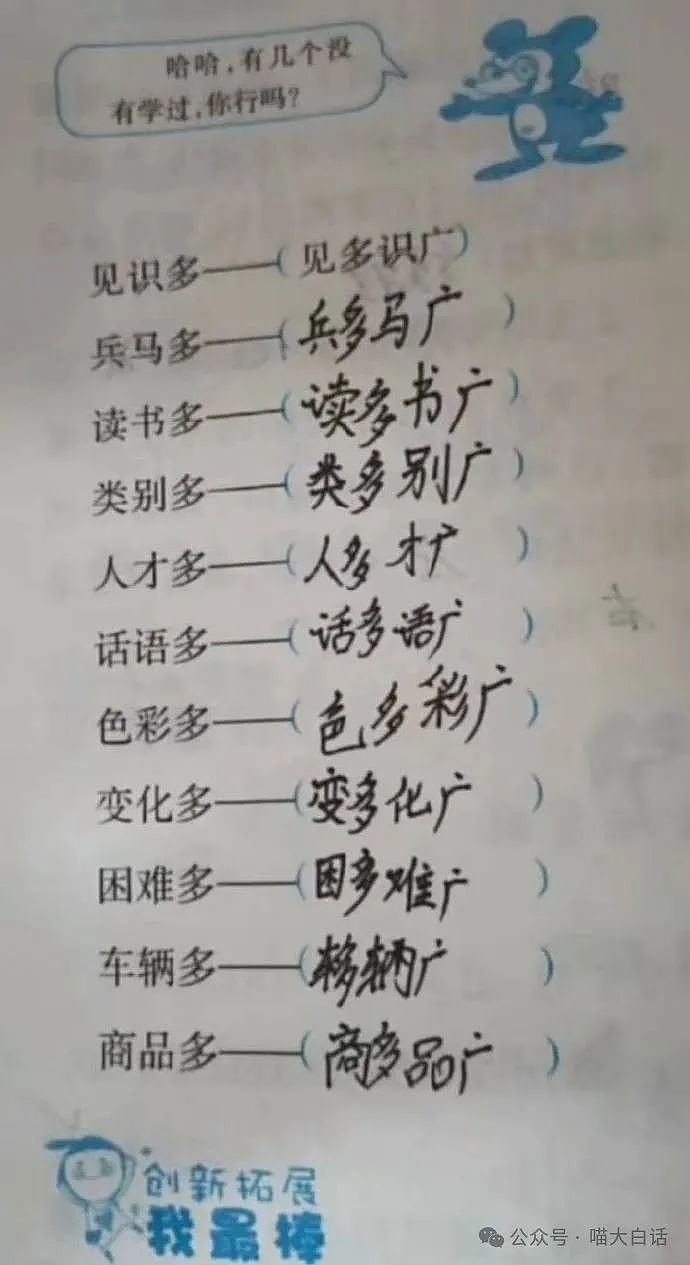 哈哈，有几个没
有学过，你行吗？
见识多——（见多识广）
兵马多——（兵多马广）
读书多——（读多书广）
类别多——（类多别广）
人才多——（人多才广）
话语多——（话多语广）
色彩多——（色多彩广）
变化多——（变多化广）
困难多——（困多难广）
车辆多——（车多辆广）
商品多——（商多品广）
创新拓展
我最棒
公众号·喵大白话